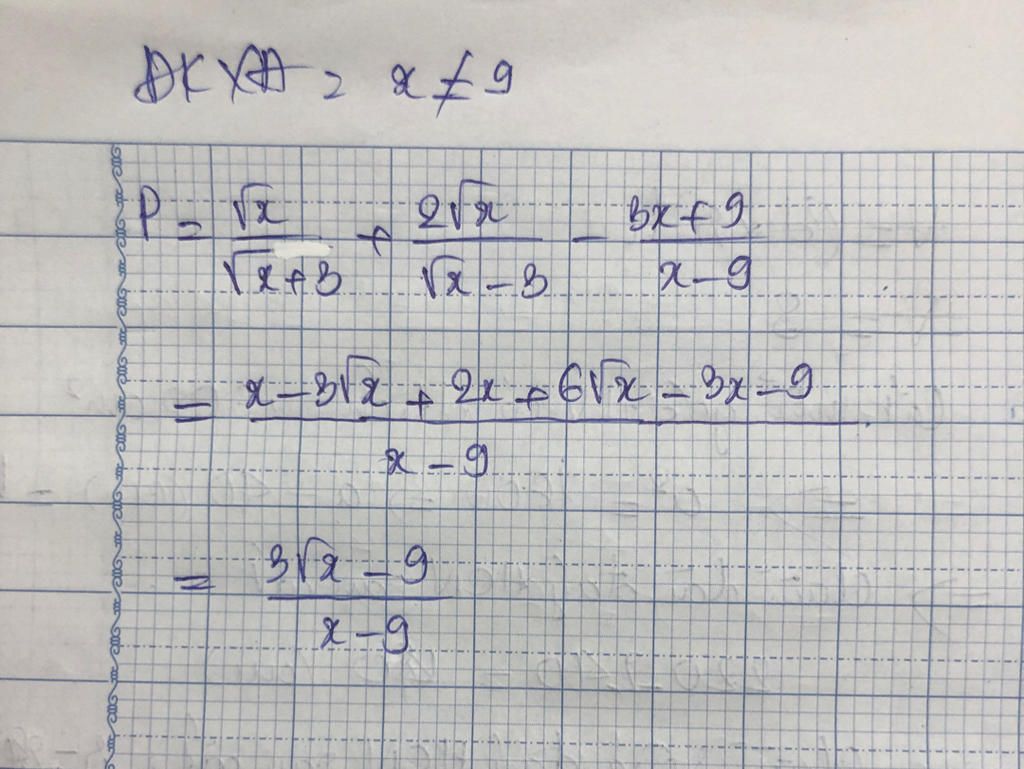 ĐKXĐ: x ≠ 9
P = √x/(√x + 3) + 2√x/(√x - 3) - (3x + 9)/(x - 9)
= (x - 3√x + 2x + 6√x - 3x - 9)/(x - 9)
= (3√x - 9)/(x - 9)